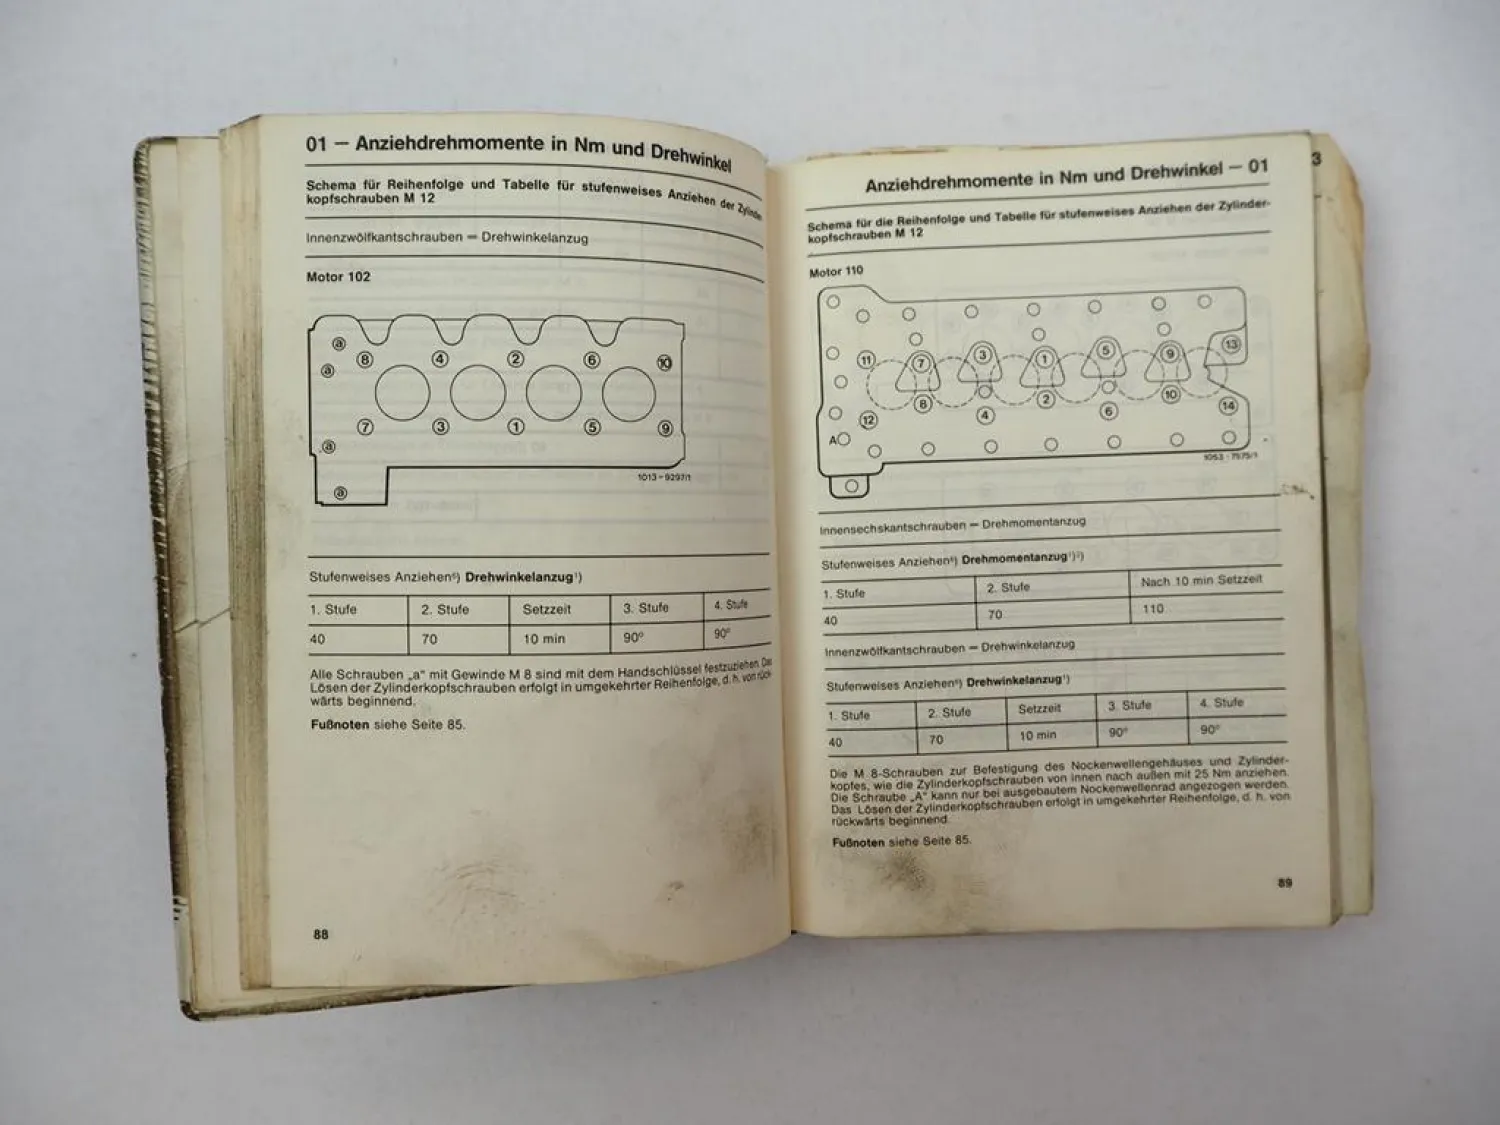 01 — Anziehdrehmomente in Nm und Drehwinkel
Schema für Reihenfolge und Tabelle für stufenweises Anziehen der Zylinder-
kopfschrauben M 12
Innenzwölfkantschrauben — Drehwinkelanzug
Motor 102
a
8 4 2 6 10
a
7 3 1 5 9
a
1013-9297/1
a
Stufenweises Anziehen⁶) Drehwinkelanzug¹)
1. Stufe 2. Stufe Setzzeit 3. Stufe 4. Stufe
40 70 10 min 90° 90°
Alle Schrauben „a" mit Gewinde M 8 sind mit dem Handschlüssel festzuziehen. Das
Lösen der Zylinderkopfschrauben erfolgt in umgekehrter Reihenfolge, d. h. von rück-
wärts beginnend.
Fußnoten siehe Seite 85.
88
3
Anziehdrehmomente in Nm und Drehwinkel — 01
Schema für die Reihenfolge und Tabelle für stufenweises Anziehen der Zylinder-
kopfschrauben M 12
Motor 110
11 7 3 1 5 9 13
12 8 4 2 6 10 14
A
1053-7575/1
Innensechskantschrauben — Drehmomentanzug
Stufenweises Anziehen⁶) Drehmomentanzug¹)²)
1. Stufe 2. Stufe Nach 10 min Setzzeit
40 70 110
Innenzwölfkantschrauben — Drehwinkelanzug
Stufenweises Anziehen⁶) Drehwinkelanzug¹)
1. Stufe 2. Stufe Setzzeit 3. Stufe 4. Stufe
40 70 10 min 90° 90°
Die M 8-Schrauben zur Befestigung des Nockenwellengehäuses und Zylinder-
kopfes, wie die Zylinderkopfschrauben von innen nach außen mit 25 Nm anziehen.
Die Schraube „A" kann nur bei ausgebautem Nockenwellenrad angezogen werden.
Das Lösen der Zylinderkopfschrauben erfolgt in umgekehrter Reihenfolge, d. h. von
rückwärts beginnend.
Fußnoten siehe Seite 85.
89